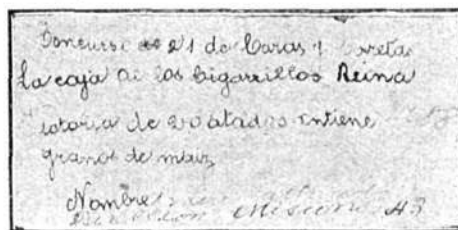 Concurso de 21 de Caras y Careta
La caja de los Cigarrillos Reina
de 20 atados contiene
granos de maiz
Nombre
Misiones 43